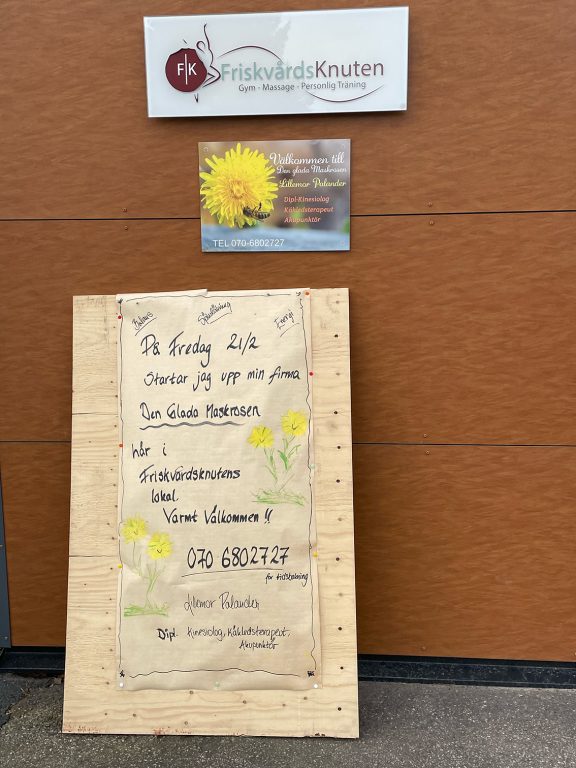 F|K
FriskvårdsKnuten
Gym - Massage - Personlig Träning
Välkommen till
Den glada Maskrosen
Lillemor Palander
Dipl-Kinesiolog
Käkledsterapeut
Akupunktör
TEL 070-6802727
Balans
Energi
På Fredag 21/2
Startar jag upp min firma
Den Glada Maskrosen
här i
Friskvårdsknutens
lokal.
Varmt Välkommen !!
070 6802727
för tidsbokning
Lillemor Palander
Dipl. Kinesiolog, Käkledsterapeut,
Akupunktör